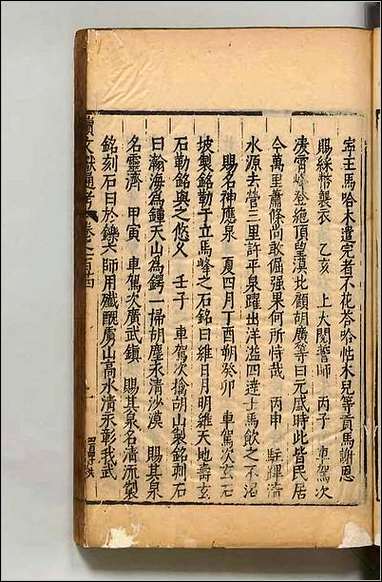 寧王馬哈木遣完者不花荅哈帖木兒等貢馬謝恩
賜綵幣襲衣　乙亥　上大閱誓師　丙子　車駕次
凌霄峰登絶頂望漠北顧胡廣等曰元盛時此皆民居
今萬里蕭條尚敢倔强果何所恃哉　丙申　駐蹕清
水源去營三里許平泉躍出洋溢四逹士馬飲之不涸
賜名神應泉　夏四月丁酉朔癸卯　車駕次玄石
坡製銘勒于立馬峰之石銘曰維日月明維天地壽玄
石勒銘與之悠乆　壬子　車駕次擒胡山製銘刺石
曰瀚海為鐔天山為鍔一掃胡塵永清沙漠　賜其泉
名靈濟　甲寅　車駕次廣武鎮　賜其泉名清流製
銘刻石曰於鑠六師用殲醜虜山高水清永彰我武
續文獻通考　卷之